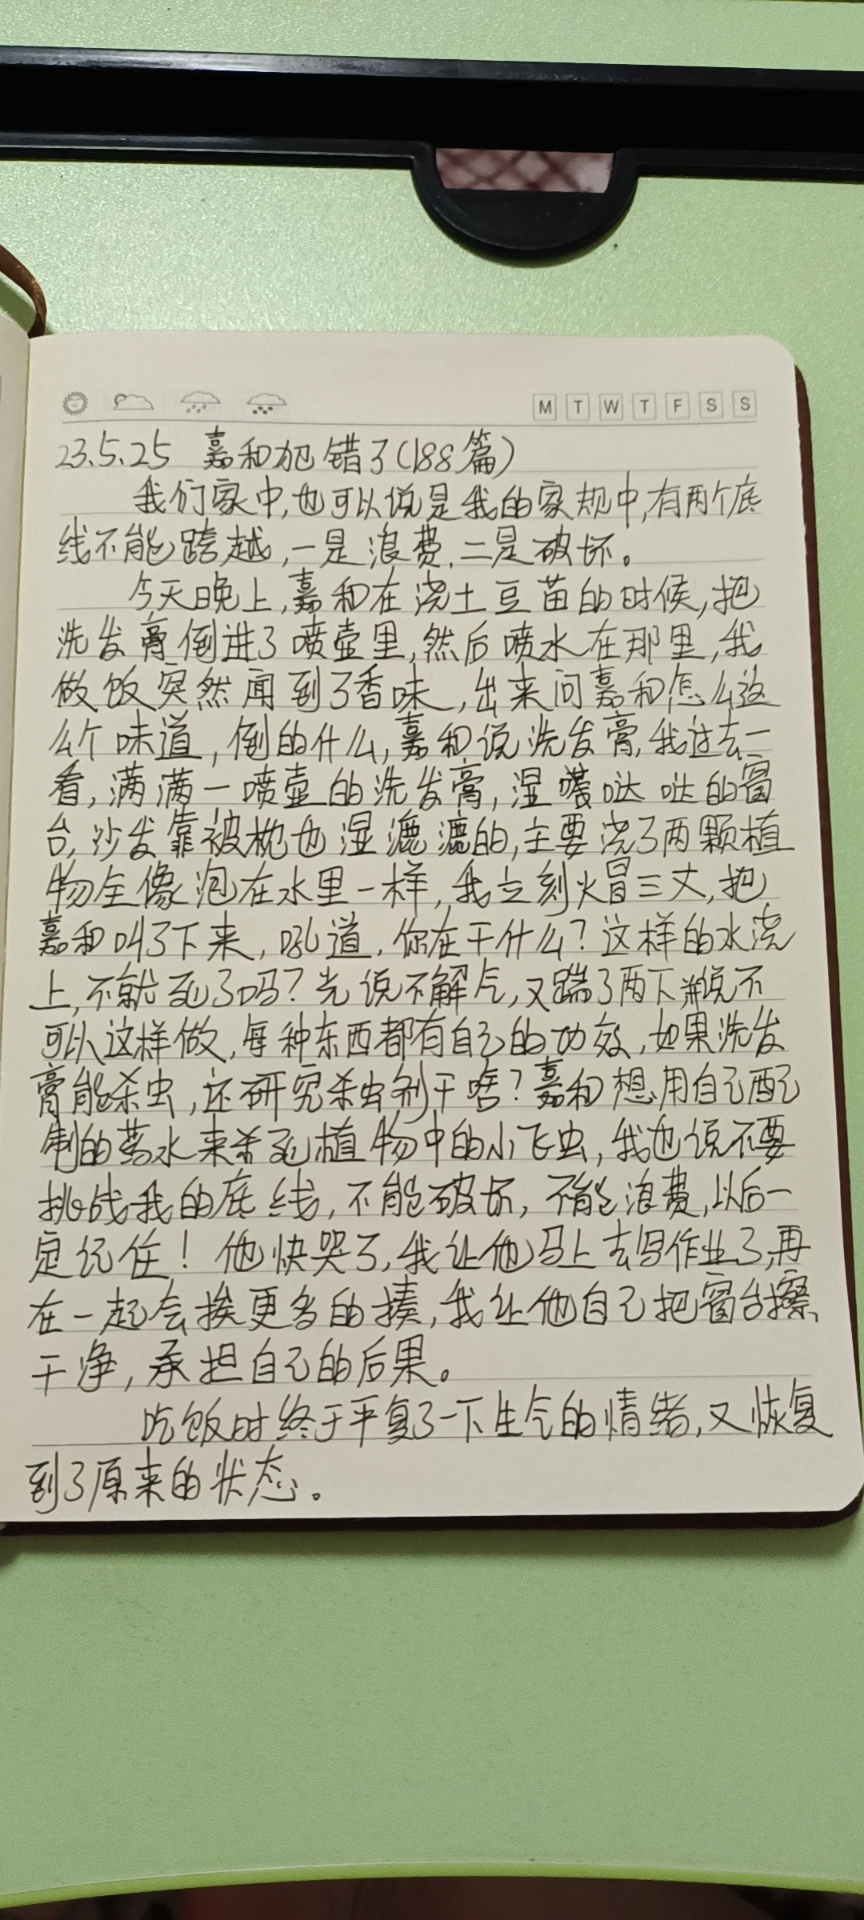 M T W T F S S
23.5.25 嘉和犯错了(188篇)
我们家中,也可以说是我的家规中,有两个底
线不能跨越,一是浪费,二是破坏。
今天晚上,嘉和在浇土豆苗的时候,把
洗发膏倒进了喷壶里,然后喷水在那里,我
做饭突然闻到了香味,出来问嘉和怎么这
么个味道,倒的什么,嘉和说洗发膏,我过去一
看,满满一喷壶的洗发膏,湿嗒哒哒的窗
台,沙发靠被枕也湿漉漉的,主要浇了两颗植
物全像泡在水里一样,我立刻火冒三丈,把
嘉和叫了下来,吼道,你在干什么?这样的水浇
上,不就死了吗?光说不解气,又踹了两下,说不
可以这样做,每种东西都有自己的功效,如果洗发
膏能杀虫,还研究杀虫剂干啥?嘉和想用自己配
制的药水来杀死植物中的小飞虫,我也说不要
挑战我的底线,不能破坏,不能浪费,以后一
定记住!他快哭了,我让他马上去写作业了,再
在一起会挨更多的揍,我让他自己把窗台擦
干净,承担自己的后果。
吃饭时终于平复了一下生气的情绪,又恢复
到了原来的状态。